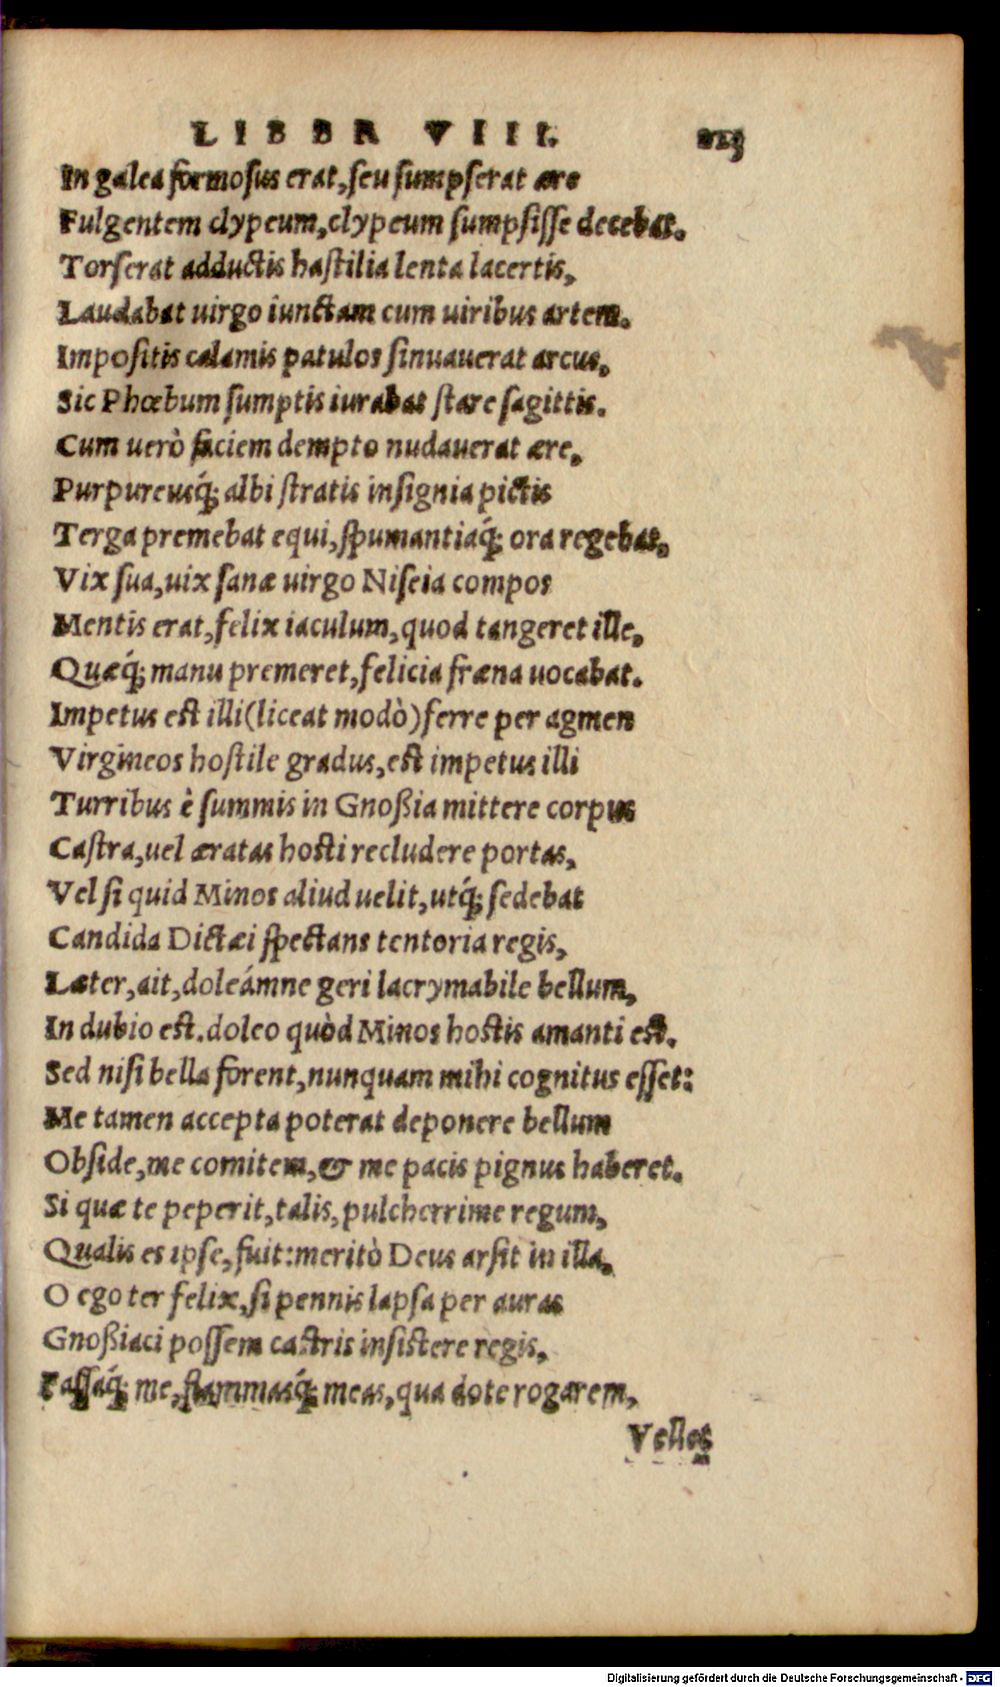 LIBER VIII. 213
In galea formosus erat, seu sumpserat ære
Fulgentem clypeum, clypeum sumpsisse decebat.
Torserat adductis hastilia lenta lacertis,
Laudabat uirgo iunctam cum uiribus artem.
Impositis calamis patulos sinuauerat arcus,
Sic Phœbum sumptis iurabat stare sagittis.
Cum uerò faciem dempto nudauerat ære,
Purpureusq́; albi stratis insignia pictis
Terga premebat equi, spumantiaq́; ora regebat,
Vix sua, uix sanæ uirgo Niseia compos
Mentis erat, felix iaculum, quod tangeret ille,
Quæq́; manu premeret, felicia fræna uocabat.
Impetus est illi (liceat modò) ferre per agmen
Virgineos hostile gradus, est impetus illi
Turribus è summis in Gnoßia mittere corpus
Castra, uel æratas hosti recludere portas,
Vel si quid Minos aliud uelit, utq́; sedebat
Candida Dictæi spectans tentoria regis,
Læter, ait, doleámne geri lacrymabile bellum,
In dubio est. doleo quòd Minos hostis amanti est.
Sed nisi bella forent, nunquam mihi cognitus esset:
Me tamen accepta poterat deponere bellum
Obside, me comitem, & me pacis pignus haberet.
Si quæ te peperit, talis, pulcherrime regum,
Qualis es ipse, fuit: meritò Deus arsit in illa,
O ego ter felix, si pennis lapsa per auras
Gnoßiaci possem castris insistere regis,
Fassaq́; me, flammasq́; meas, qua dote rogarem,
Vellet
Digitalisierung gefördert durch die Deutsche Forschungsgemeinschaft - DFG